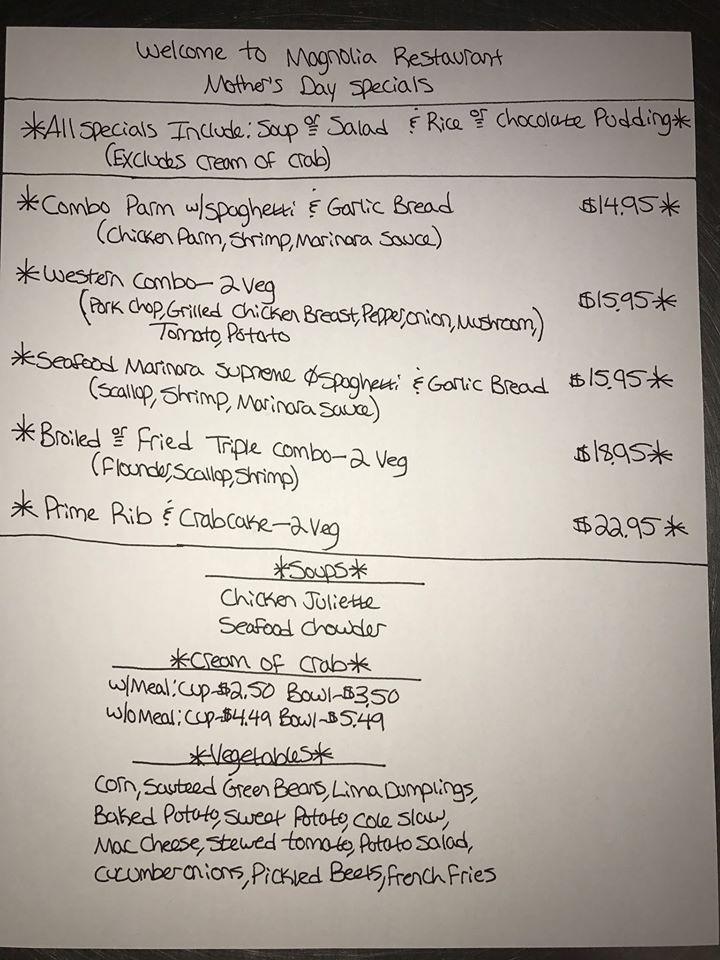 Welcome to Magnolia Restaurant
Mother's Day specials
*All specials Include: Soup or Salad & Rice or Chocolate Pudding*
(Excludes Cream of Crab)
*Combo Parm w/spaghetti & Garlic Bread $14.95*
(Chicken Parm, Shrimp, Marinara Sauce)
*Western Combo-2 Veg $15.95*
(Pork Chop, Grilled Chicken Breast, Pepper, onion, Mushroom,)
Tomato, Potato
*Seafood Marinara Supreme Spaghetti & Garlic Bread $15.95*
(Scallop, Shrimp, Marinara Sauce)
*Broiled or Fried Triple Combo-2 Veg $18.95*
(Flounder, Scallop, Shrimp)
*Prime Rib & Crabcake-2 Veg $22.95*
*Soups*
Chicken Juliette
Seafood Chowder
*Cream of Crab*
w/Meal: Cup-$2.50 Bowl-$3.50
w/o Meal: Cup-$4.49 Bowl-$5.49
*Vegetables*
Corn, Sauteed Green Beans, Lima Dumplings,
Baked Potato, Sweet Potato, Cole Slaw,
Mac Cheese, Stewed tomato, Potato Salad,
Cucumber onions, Pickled Beets, French Fries